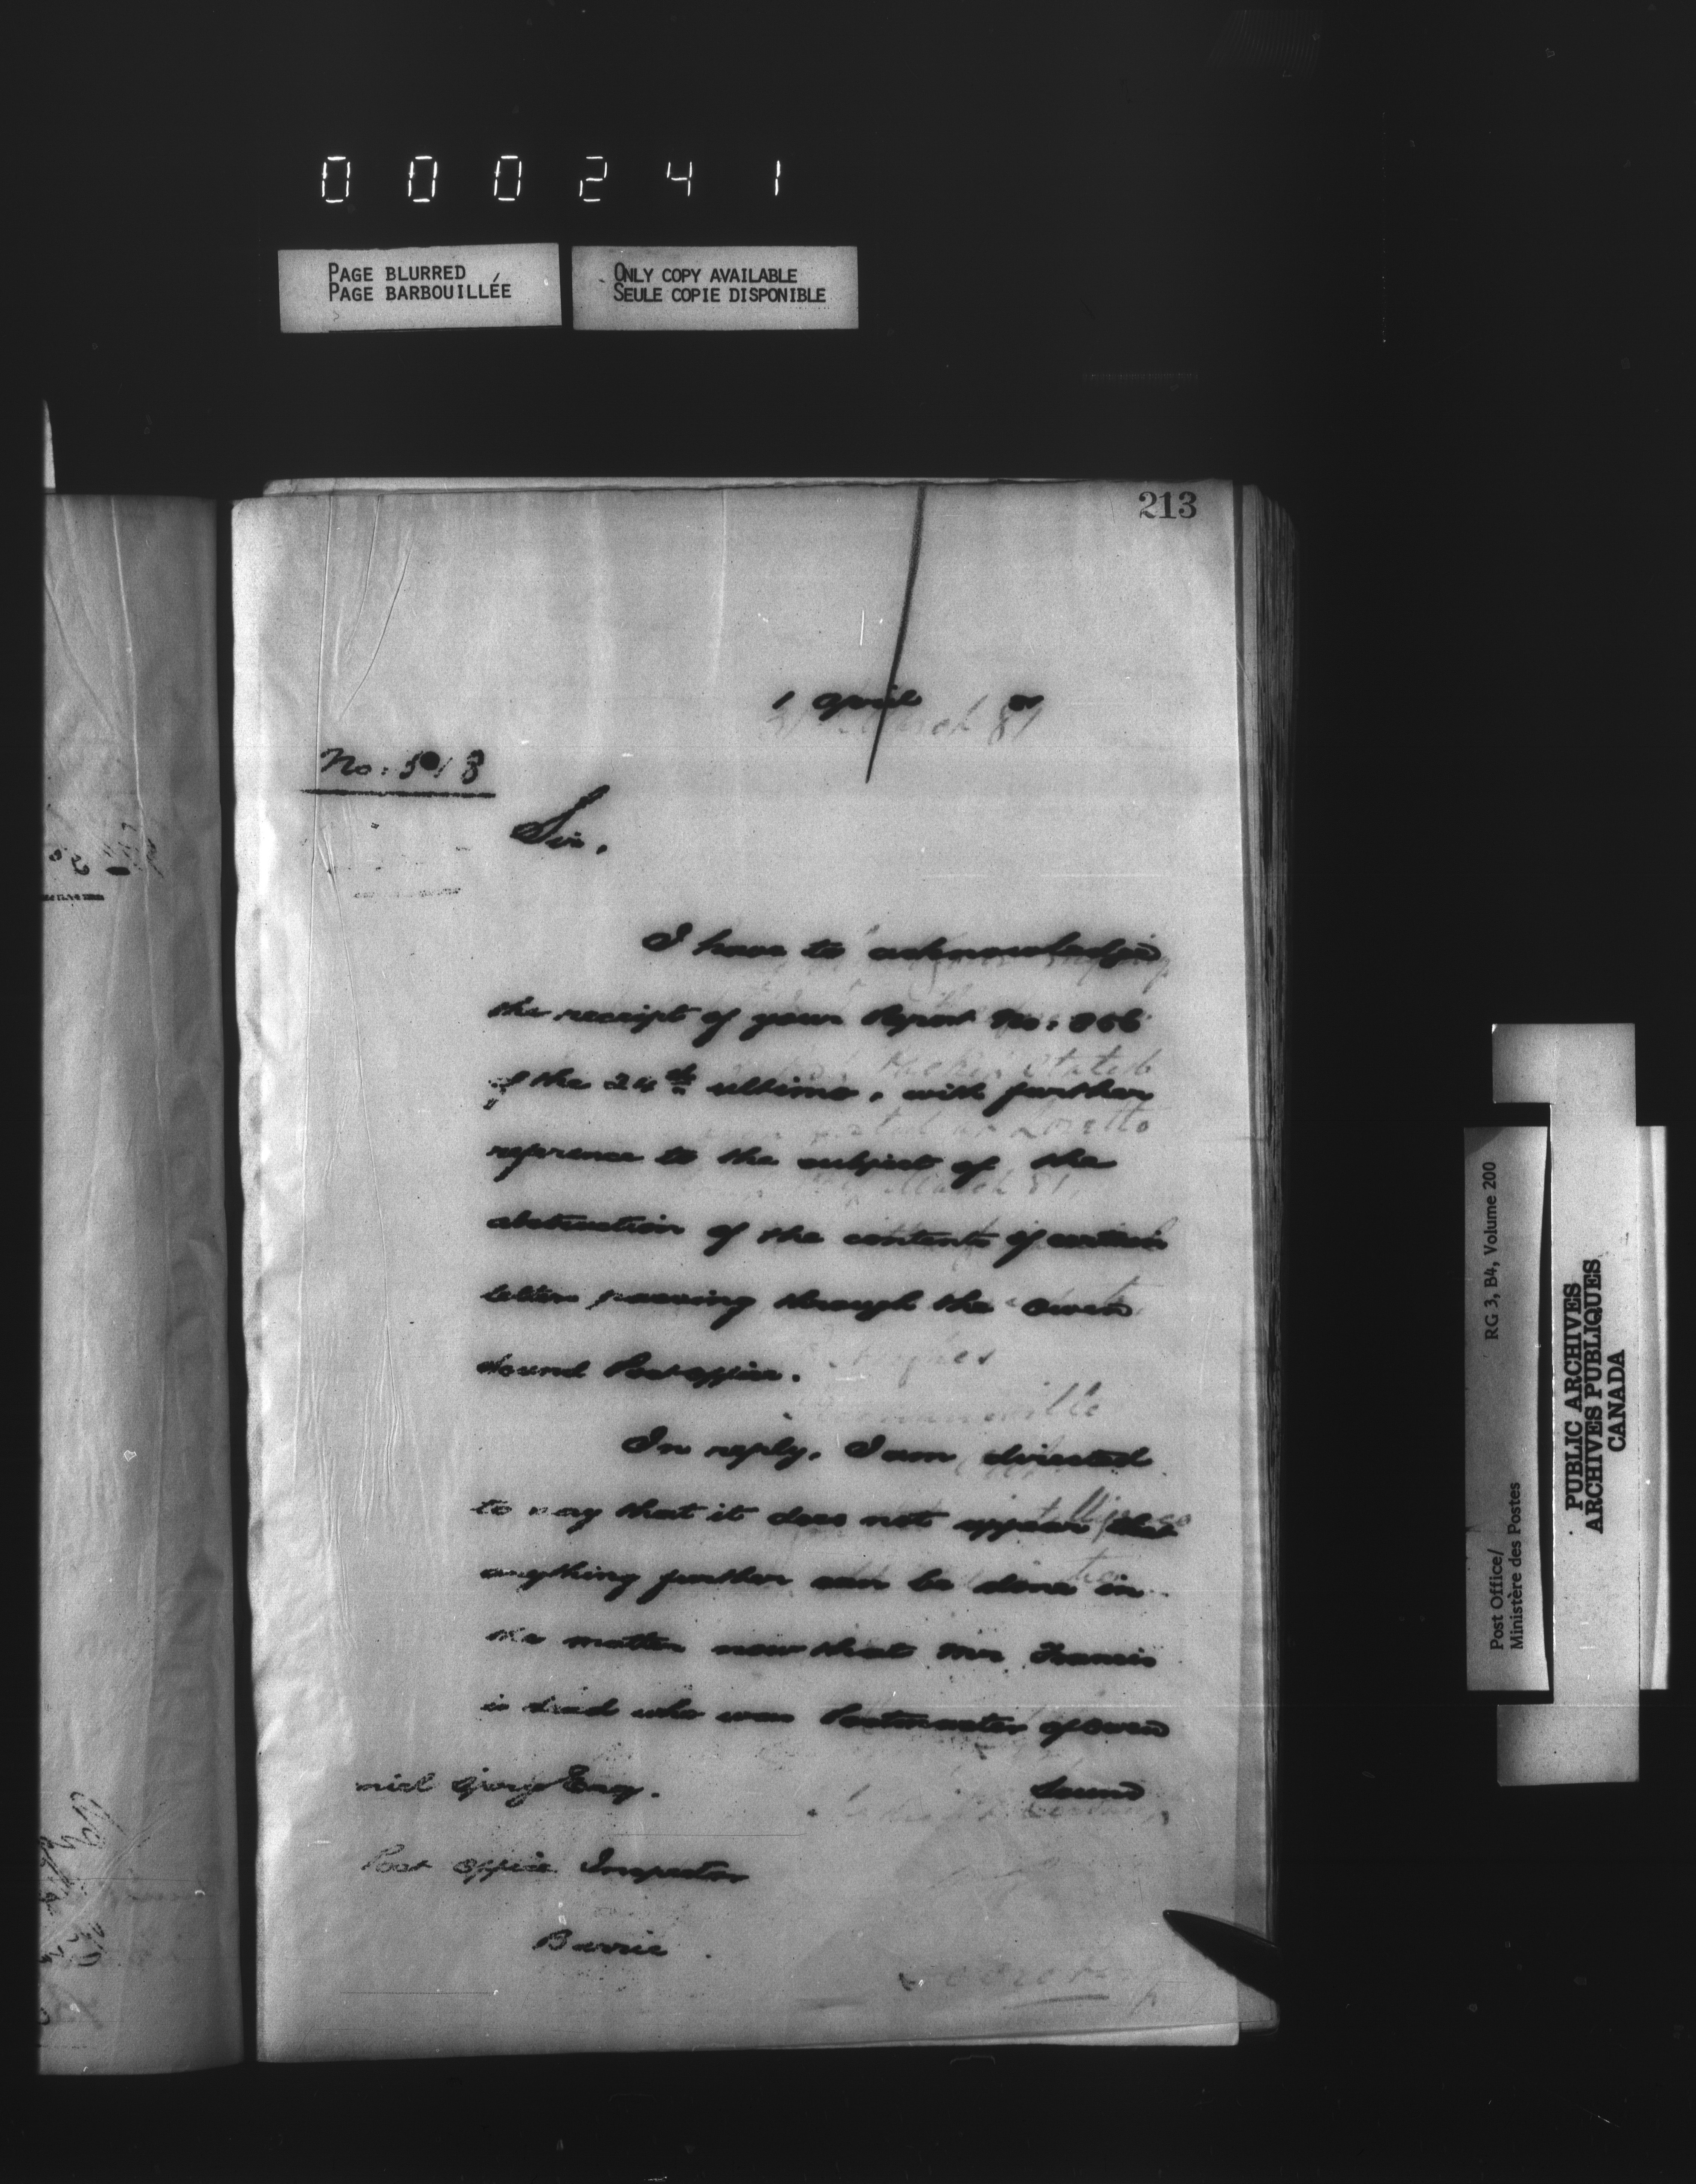 000241
PAGE BLURRED
PAGE BARBOUILLÉE
ONLY COPY AVAILABLE
SEULE COPIE DISPONIBLE
213
1 April 81
No: 
Sir,
I have to acknowledge
the receipt of your Report No: 866
of the 24th ultimo, with further
reference to the subject of the
abstraction of the contents of certain
letters passing through the Owen
Sound Post office.
In reply, I am directed
to say that it does not appear that
anything further can be done in
the matter now that Mr. Francis
is dead who was Postmaster of Owen
Sound
Esq.
Post Office Inspector
Barrie
Post Office/
Ministère des Postes
RG 3, B4, Volume 200
PUBLIC ARCHIVES
ARCHIVES PUBLIQUES
CANADA